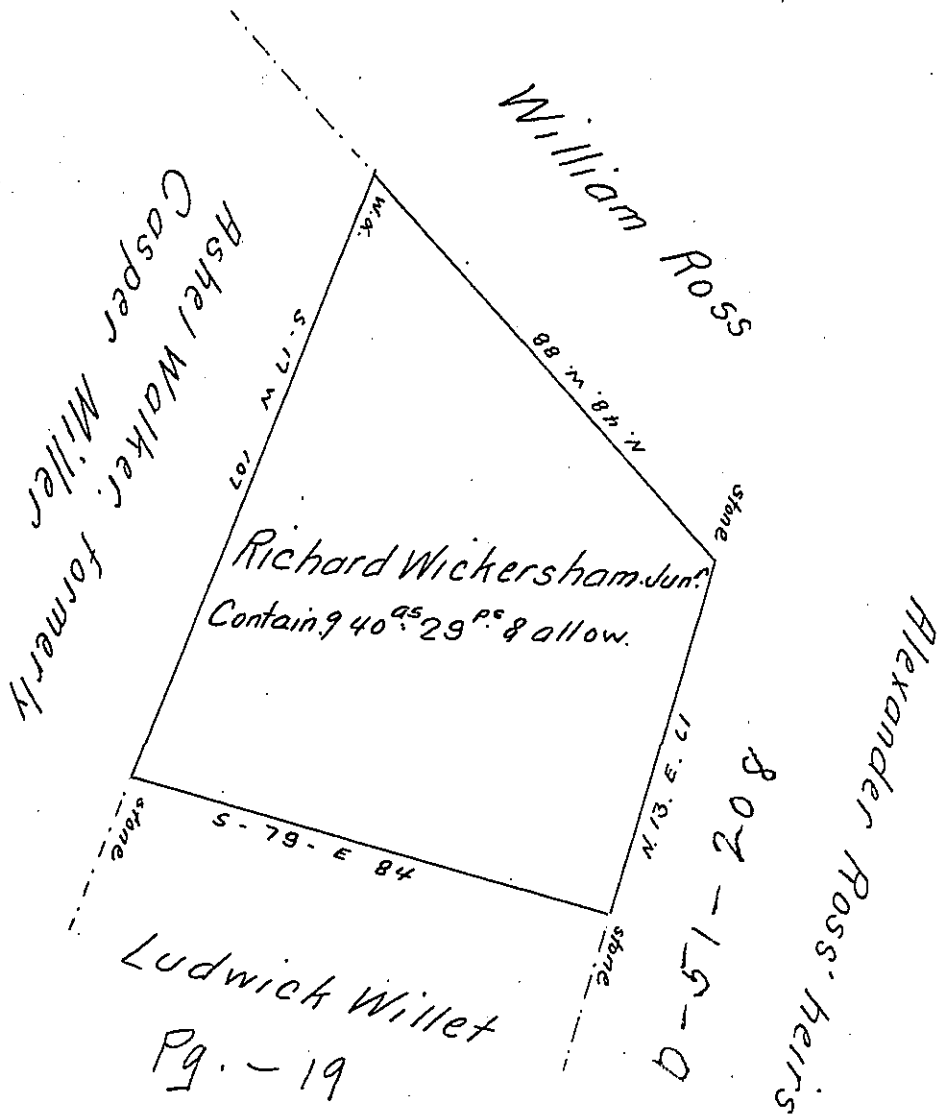 William Ross
Ashel Walker. formerly
Casper Miller
W.O.
N. 48. W. 88
S-17 W 107
stone
Richard Wickersham Junr.
Contain.g 40 as. 29 p.s & allow.
N. 13. E. 17
stone
S-79-E 84
stone
Alexander Ross' heirs
D-51-208
Ludwick Willet
Pg. - 19